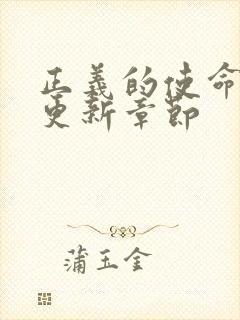 正義的使命
更新章節
蒲玉金